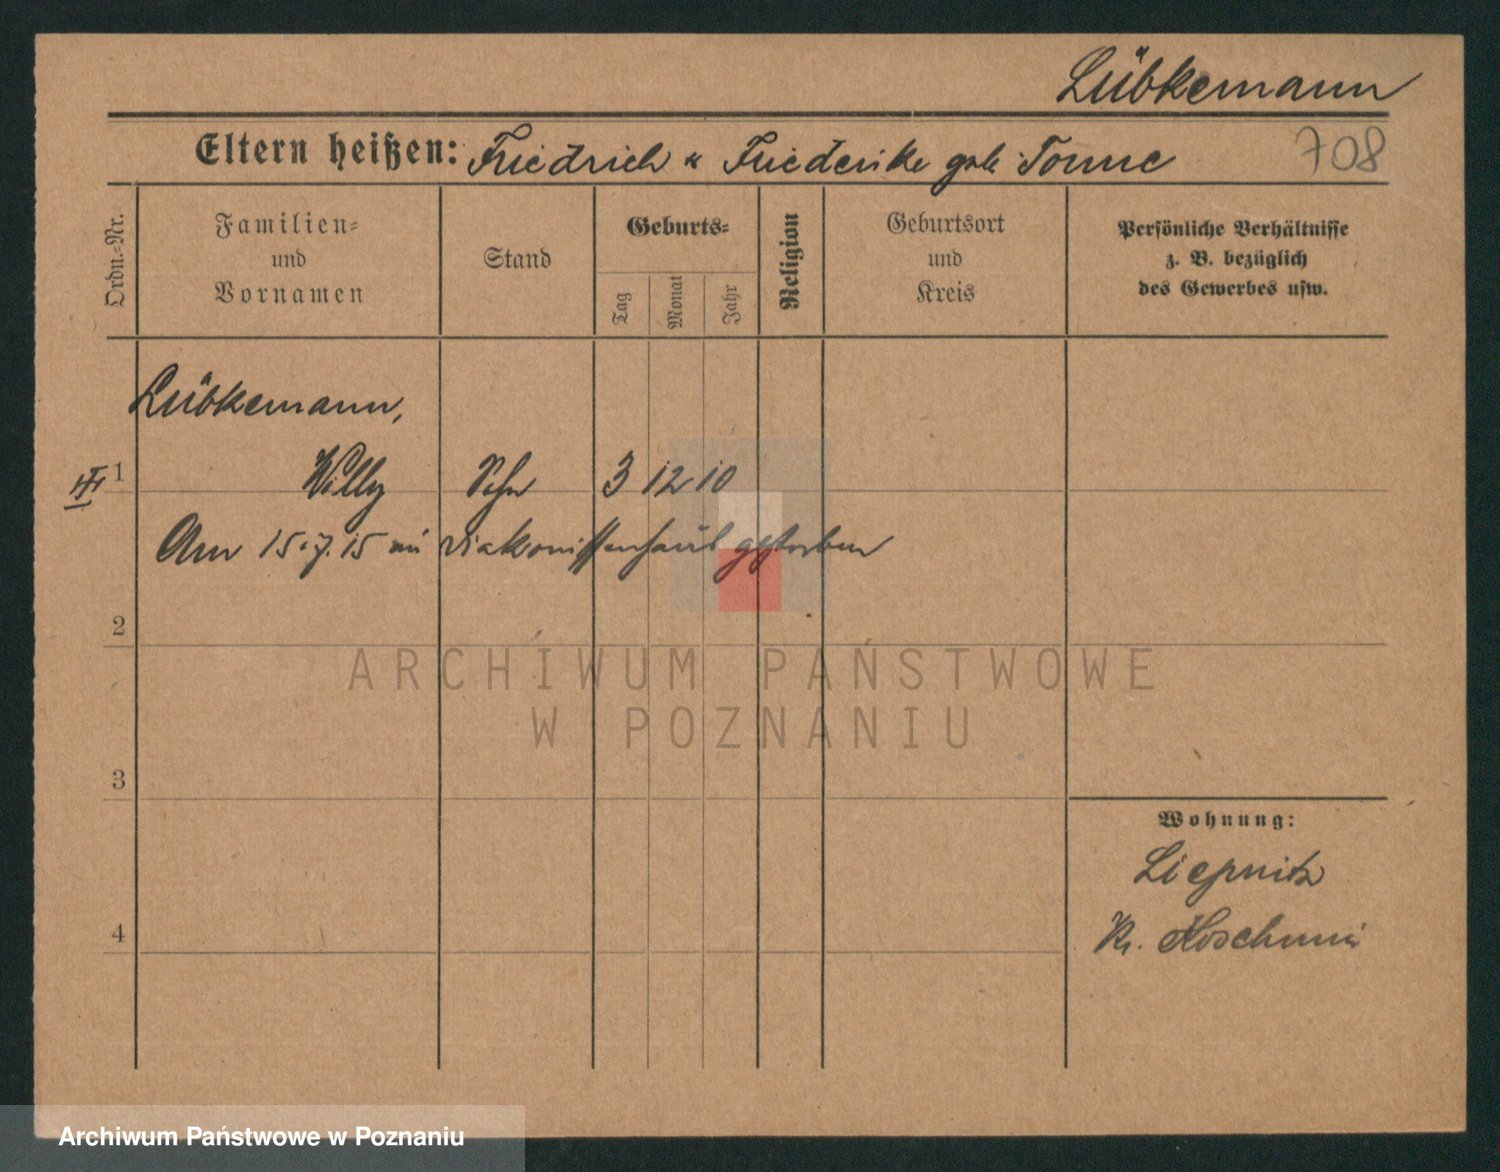 Lübkemann
Eltern heißen: Friedrich u Friederike geb. Tonne
708
Ordn.-Nr.
Familien- und Vornamen
Stand
Geburts-
Tag
Monat
Jahr
Religion
Geburtsort und Kreis
Persönliche Verhältnisse z. B. bezüglich des Gewerbes usw.
Lübkemann,
1 Willy Sohn 3 12 10
Am 15.7.15 im Diakonissenhaus gestorben
2
ARCHIWUM PAŃSTWOWE
W POZNANIU
3
Wohnung:
Liepnitz
4
Kr. Koschmin
Archiwum Państwowe w Poznaniu